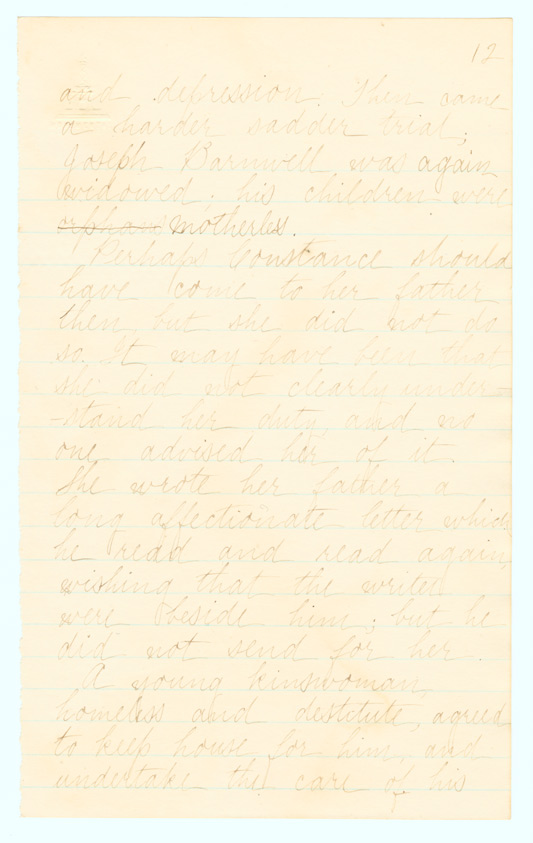 12
and depression. Then came
a harder sadder trial;
Joseph Barnwell was again
widowed; his children were
orphans motherless.
Perhaps Constance should
have come to her father
then, but she did not do
so. It may have been that
she did not clearly under-
-stand her duty, and no
one advised her of it.
She wrote her father a
long affectionate letter which
he read and read again,
wishing that the writer
were beside him; but he
did not send for her.
A young kinswoman,
homeless and destitute, agreed
to keep house for him, and
undertake the care of his